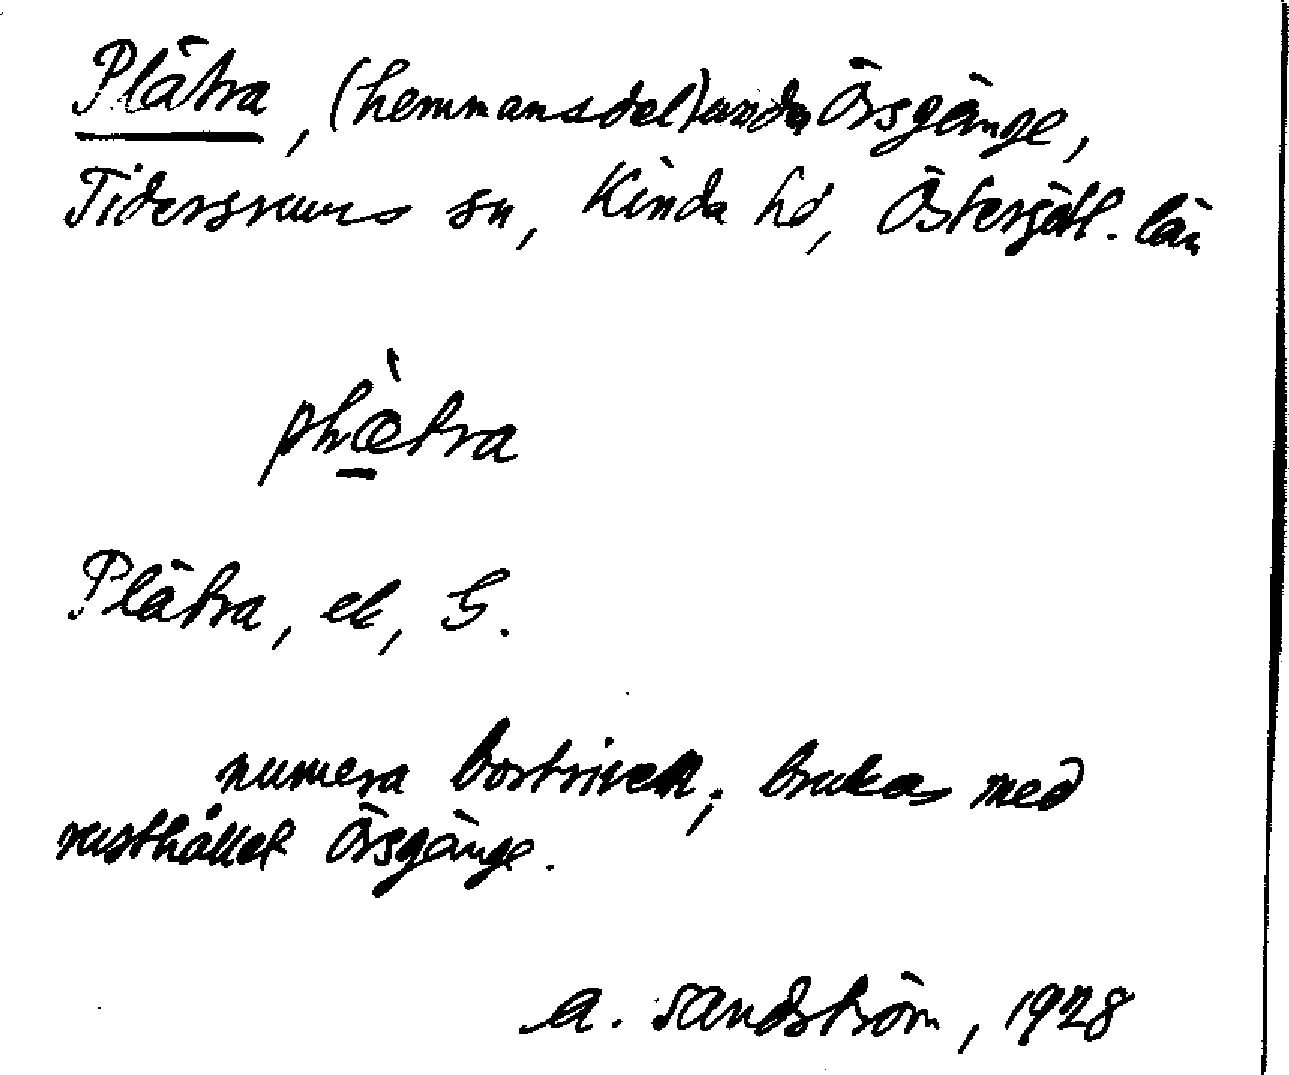 Plätra, (hemmansdel) under Örsgänge,
Tidersrums sn, Kinda hd, Östergötl. län
plætra
Plätra, ek, G.
numera bortriven, brukas med
rusthållet Örsgänge.
A. Sandström, 1928